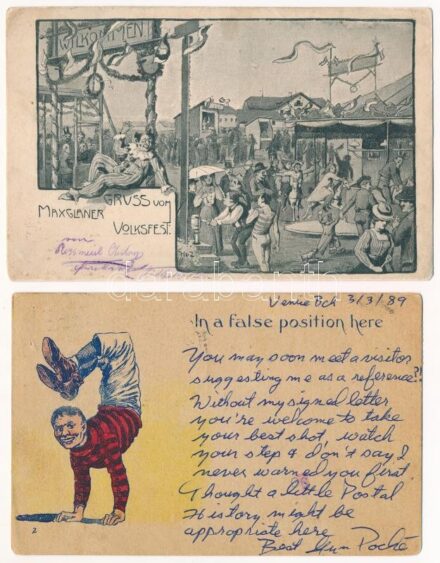 WILLKOMMEN
GRUSS VOM
MAXGLANER
VOLKSFEST.
von
darabanth
Venice Bch 3/3/89
In a false position here
You may soon meet a visitor
suggesting me as a reference?!
Without my signed letter
you're welcome to take
your best shot, watch
your step & don't say I
never warned you first
Thought a little Postal
History might be
appropriate here
Best
2